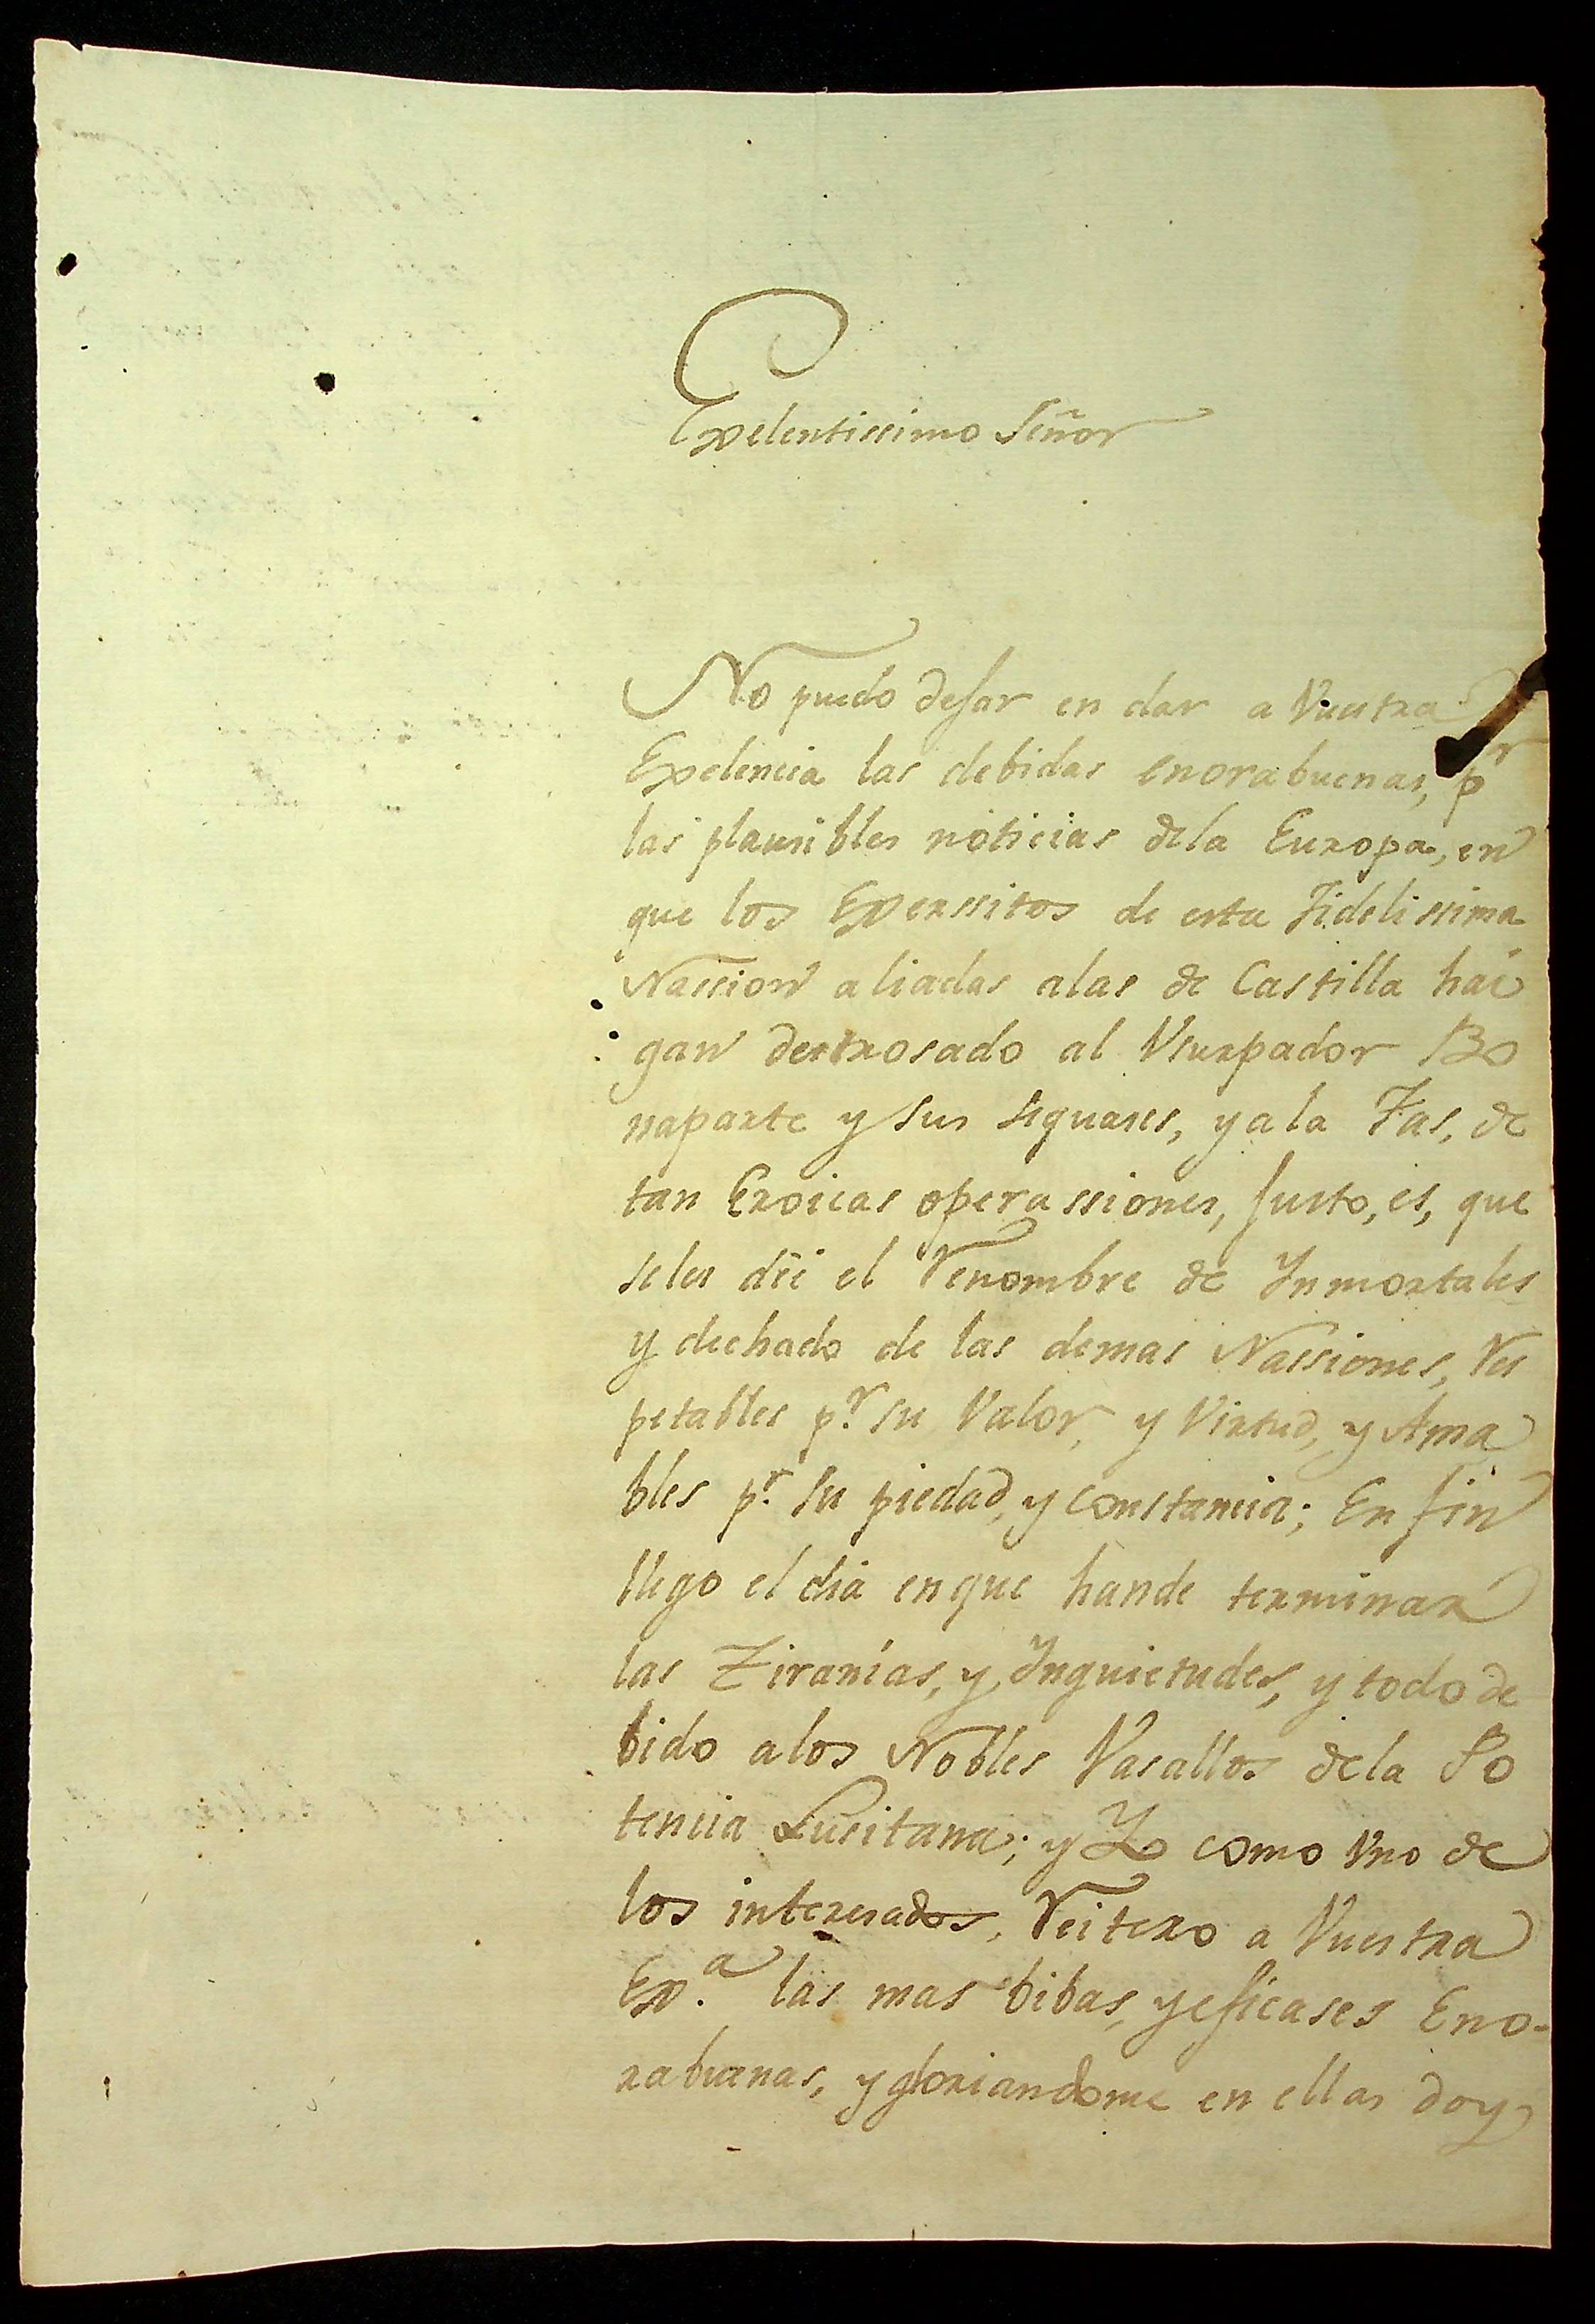 Exelentissimo Señor
No puedo desar en dar a Vuestra
Exelencia las debidas enorabuenas, pr
las plausibles noticias dela Europa, en
que los Exerssitos de esta Fidelissima
Nassion aliadas alas de Castilla hai
gan destrosado al Vsurpador Bo
naparte y sus sequases, y a la Fas, de
tan Eroicas operassiones, Justo, es, que
seles déé el Renombre de Ynmortales
y dechado de las demas Nassiones, Res
petables pr. su Valor, y Virtud, y Ama
bles pr. su piedad, y constancia; En fin
llego el dia enque hande terminar
las Tiranías, y Ynquietudes, y todo de
bido alos Nobles Vasallos dela Po
tencia Lusitana; y Yo como Vno de
los interesados, Reitero a Vuestra
Exa. las mas bibas, y eficases Eno-
rabuenas, y gloriandome en ellas doy